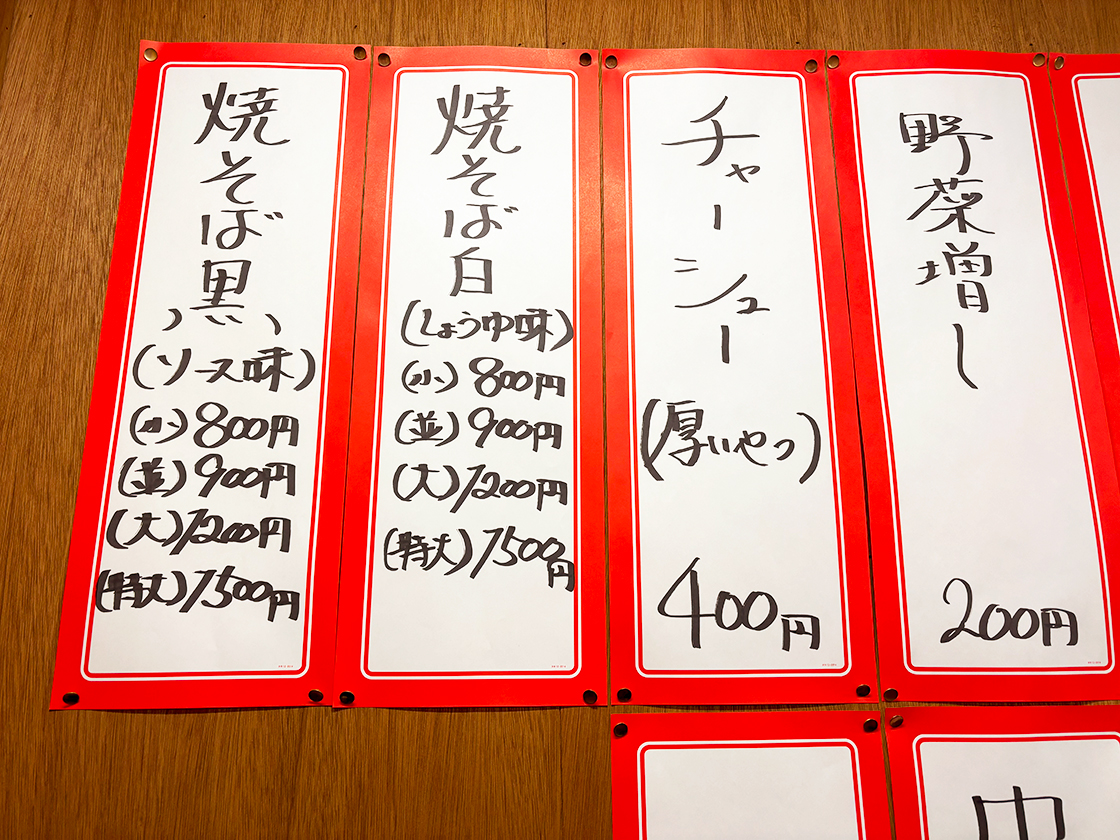 焼そば黒
(ソース味)
(小)800円
(並)900円
(大)1200円
(特大)1500円
焼そば白
(しょうゆ味)
(小)800円
(並)900円
(大)1200円
(特大)1500円
チャーシュー
(厚いやつ)
400円
野菜増し
200円